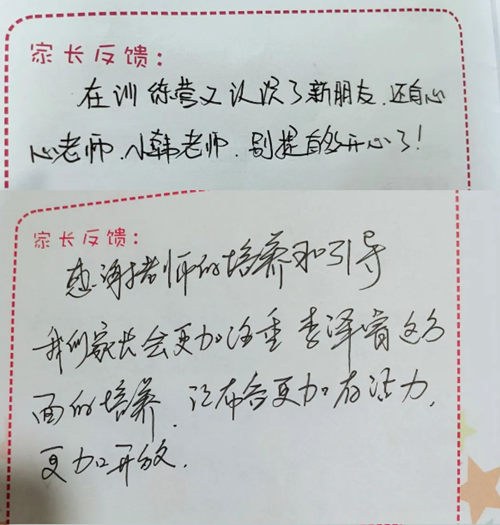 家长反馈：
在训练营又认识了新朋友，还有心
心老师、小韩老师，别提有多开心了！
家长反馈：
感谢老师的培养和引导
我们家长会更加注重李泽睿这方
面的培养，让布谷更加有活力，
更加开放。